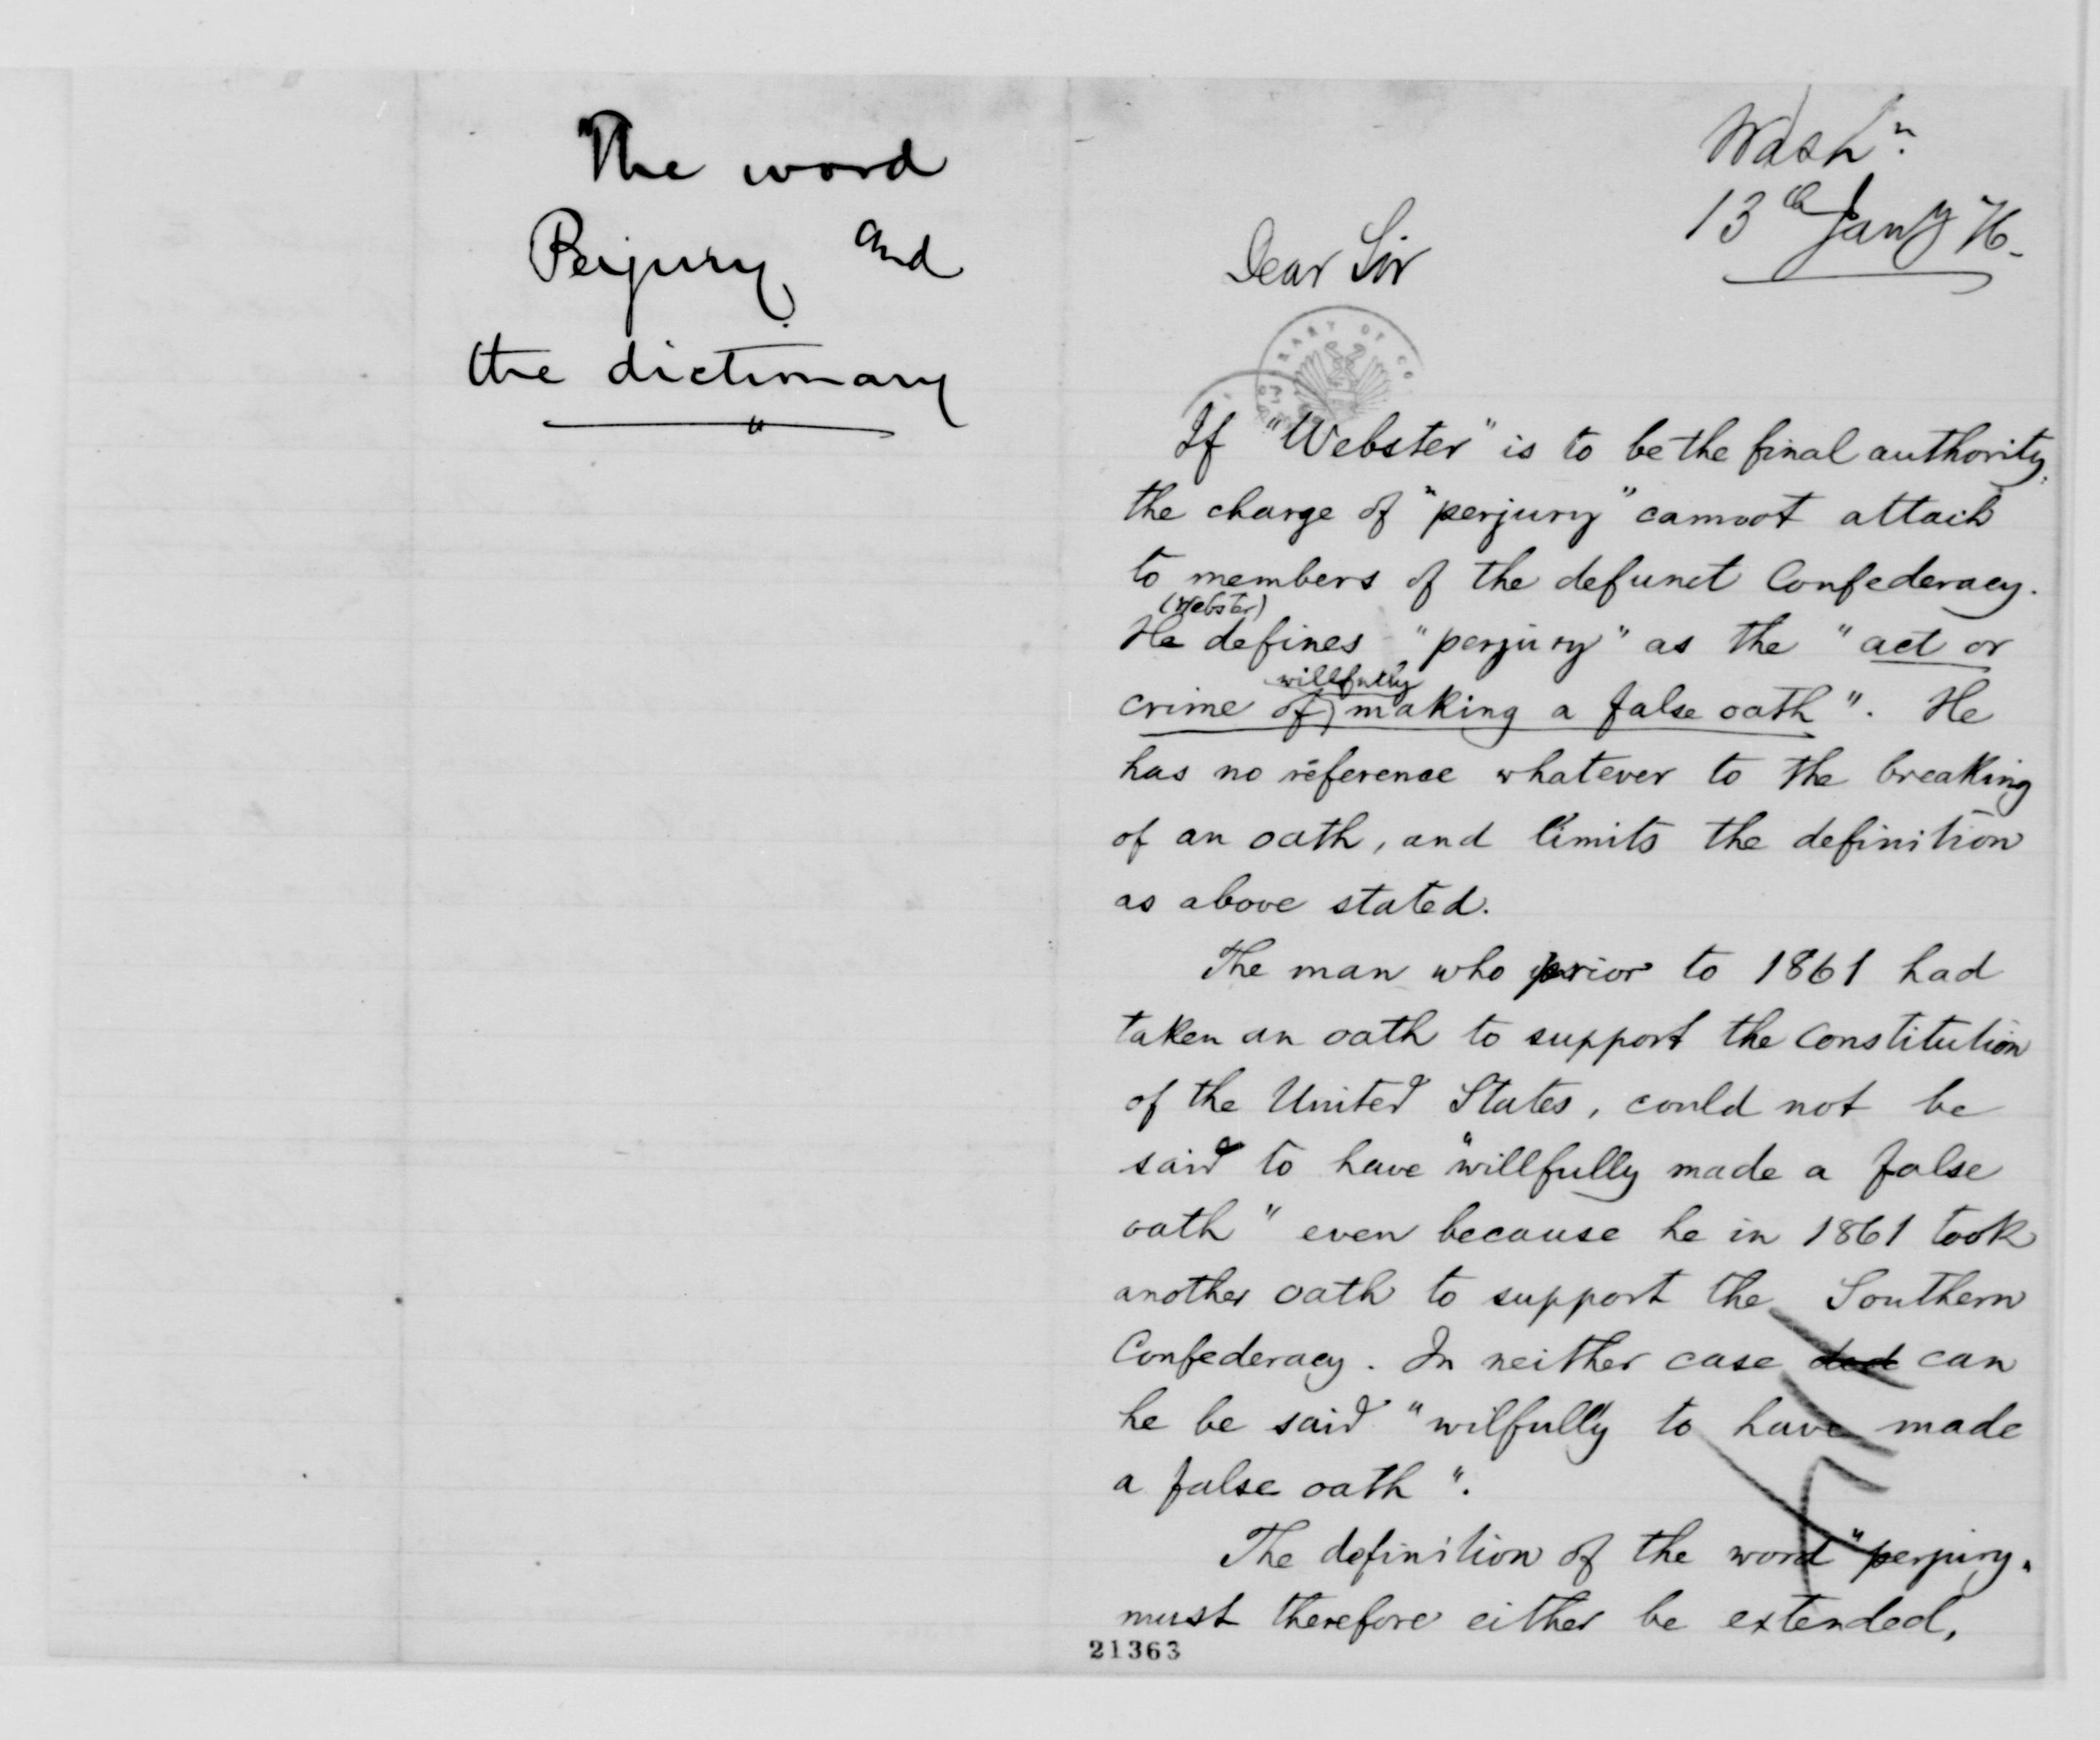 The word
Perjury and
the dictionary
"
Washn.
13th Jany 76.
Dear Sir
If "Webster" is to be the final authority,
the charge of "perjury" cannot attach
to members of the defunct Confederacy.
(Webster)
He defines "perjury" as the "act or
willfully
crime of making a false oath". He
has no reference whatever to the breaking
of an oath, and limits the definition
as above stated.
The man who prior to 1861 had
taken an oath to support the Constitution
of the United States, could not be
said to have "willfully made a false
oath" even because he in 1861 took
another oath to support the Southern
Confederacy. In neither case can
he be said "wilfully to have made
a false oath".
The definition of the word "perjury"
must therefore either be extended,
21363